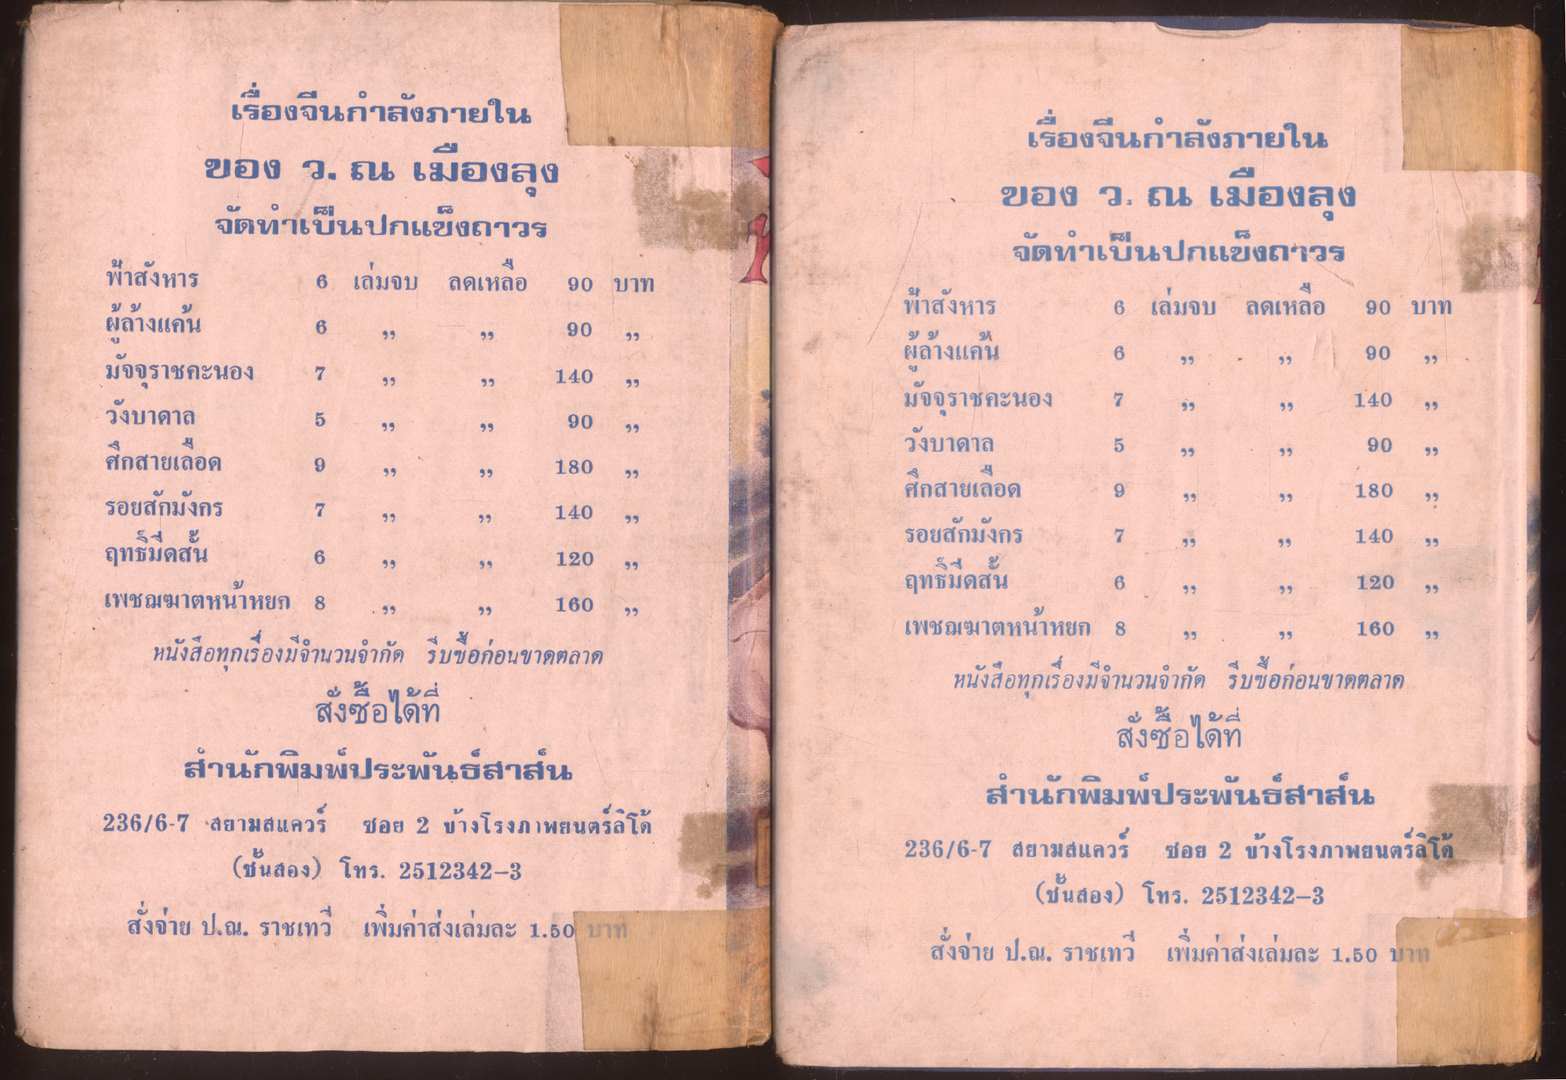 เรื่องจีนกำลังภายใน
ของ ว. ณ เมืองลุง
จัดทำเป็นปกแข็งถาวร
ฟ้าสังหาร 6 เล่มจบ ลดเหลือ 90 บาท
ผู้ล้างแค้น 6 ,, ,, 90 ,,
มัจจุราชคะนอง 7 ,, ,, 140 ,,
วังบาดาล 5 ,, ,, 90 ,,
ศึกสายเลือด 9 ,, ,, 180 ,,
รอยสักมังกร 7 ,, ,, 140 ,,
ฤทธิ์มีดสั้น 6 ,, ,, 120 ,,
เพชฌฆาตหน้าหยก 8 ,, ,, 160 ,,
หนังสือทุกเรื่องมีจำนวนจำกัด รีบซื้อก่อนขาดตลาด
สั่งซื้อได้ที่
สำนักพิมพ์ประพันธ์สาส์น
236/6-7 สยามสแควร์ ซอย 2 ข้างโรงภาพยนตร์ลิโด้
(ชั้นสอง) โทร. 2512342-3
สั่งจ่าย ป.ณ. ราชเทวี เพิ่มค่าส่งเล่มละ 1.50 บาท
เรื่องจีนกำลังภายใน
ของ ว. ณ เมืองลุง
จัดทำเป็นปกแข็งถาวร
ฟ้าสังหาร 6 เล่มจบ ลดเหลือ 90 บาท
ผู้ล้างแค้น 6 ,, ,, 90 ,,
มัจจุราชคะนอง 7 ,, ,, 140 ,,
วังบาดาล 5 ,, ,, 90 ,,
ศึกสายเลือด 9 ,, ,, 180 ,,
รอยสักมังกร 7 ,, ,, 140 ,,
ฤทธิ์มีดสั้น 6 ,, ,, 120 ,,
เพชฌฆาตหน้าหยก 8 ,, ,, 160 ,,
หนังสือทุกเรื่องมีจำนวนจำกัด รีบซื้อก่อนขาดตลาด
สั่งซื้อได้ที่
สำนักพิมพ์ประพันธ์สาส์น
236/6-7 สยามสแควร์ ซอย 2 ข้างโรงภาพยนตร์ลิโด้
(ชั้นสอง) โทร. 2512342-3
สั่งจ่าย ป.ณ. ราชเทวี เพิ่มค่าส่งเล่มละ 1.50 บาท